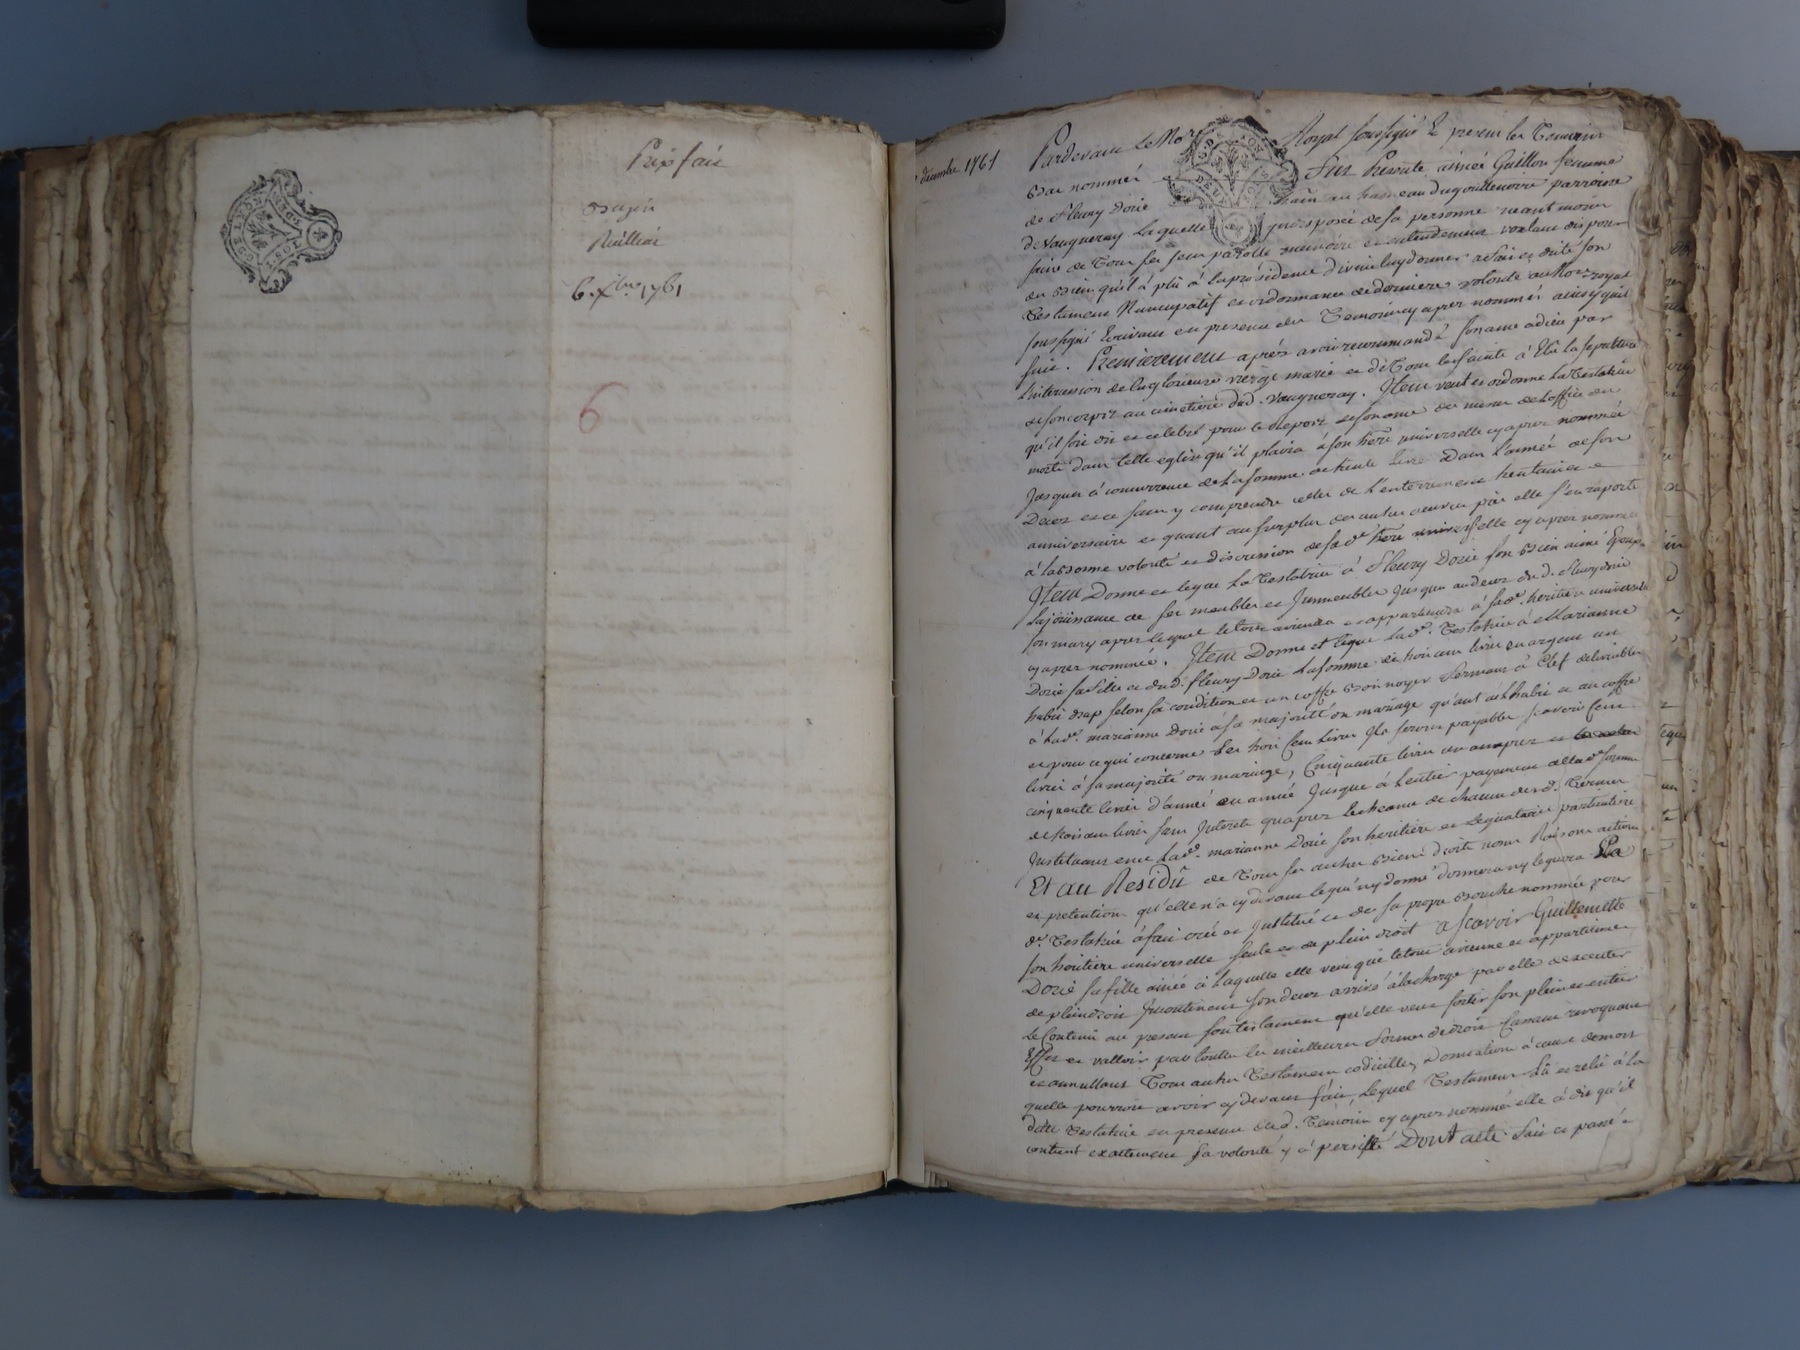 Prix fait
6 xbre 1761
6
décembre 1761
Pardevant le No.re Royal soussigné & presens les Temoins
Bas nommés fut Presente aimée Guillon femme
de fleury Dorié au hameau parroisse
de Vaugneray Laquelle de sa personne neantmoins
saine de Tous ses sens parolle memoire et entendement voulant disposer
du Bien qu'il à plû à la providence divine luy donner a fait et dicté son
Testament Nuncupatif et ordonnance de derniere volonté au No.re royal
soussigné Ecrivant en presence des Temoins cy apres nommés ainsy quil
suit. Premierement après avoir recommandé son ame a dieu par
L'intercession de la glorieuse vierge marie et de Tous les saints à Elû la sepulture
de son corps au cimetiere dud. Vaugneray. Item veut et ordonne La Testatrice
qu'il soit dit et celebré pour le repos de son ame des messes de L'office des
morts dans telle eglise qu'il plaira à son here universelle cy apres nommée
Jusques à concurrence de La somme de trente livres dans L'année de son
Deces et ce sans y comprendre celles de L'enterrement trentaine et
anniversaire et quant au surplus des autres oeuvres pies elle s'en raporte
à la bonne volonté et discretion de sa de. here universelle cy apres nommée
Item Donne et legue La Testatrice à fleury Dorié son Bien aimé Epoux
La jouissance de ses meubles et Immeubles Jusques au deces du d. fleury dorié
son mary apres lequel le tout aviendra et appartiendra à sa de. heritiere universelle
cy apres nommée. Item Donne et legue lad.e Testatrice à Marianne
Dorié sa fille et dud. fleury Dorié La somme de trois cens livres en argent un
habit drap selon sa condition et un coffre Bois noyer fermant à Clef delivrables
à lad.e marianne Dorié à sa majorité ou mariage qu'ant aud. habit et au coffre
et pour ce qui concerne Les trois Cens Livres Ils seront payables scavoir Cent
livres à sa majorité ou mariage, Cinquante livres un an apres et
cinquante livres d'année en année Jusques à L'entier payement de lad.e somme
de trois cens livres sans Interets qu'apres L'echeance de chacun desd. Termes
Instituant en ce Lad.e marianne Dorié son heritiere et Legataire particuliere
Et au Residû de Tous ses autres Biens droits noms Raisons actions
et pretentions qu'elle n'a cy devant legué ny donné donnera ny leguera La
d.e Testatrice à fait créé et Institué et de sa propre Bouche nommée pour
son heritiere universelle seule et de plein droit a scavoir Guillemette
Dorié sa fille ainée à laquelle elle veut que le tout avienne et appartienne
de plein droit Incontinent son deces arrivé à la charge par elle d'executer
Le Contenu au present son testament qu'elle veut sortir son plein et entier
Effet et valloir par toutes les meilleures formes de droit Cassant revoquant
et annullant Tous autres Testamens codicilles, Donations à cause de mort
quelle pourroit avoir cy devant fait, Lequel Testament Lû et relû à la
ditte Testatrice en presence desd. Témoins cy apres nommés elle à dit qu'il
contient exactement sa volonté y à persisté Dont acte fait et passé